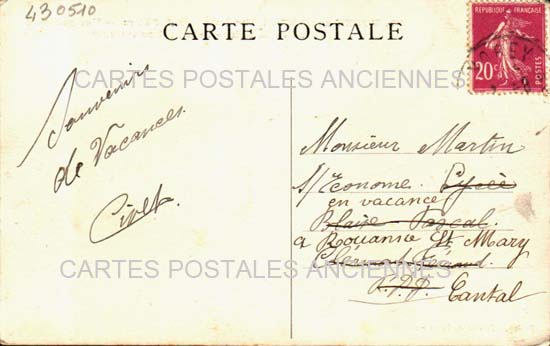 430510
CARTE POSTALE
REPUBLIQUE FRANÇAISE
20c
POSTES
CARTES POSTALES ANCIENNES
Souvenirs
de Vacances
Monsieur Martin
S/Econome. Lycée
en vacance
Blaise Pascal.
a St Mary
CARTES POSTALES ANCIENNES
Clermont Ferrand.
P.D.D. Cantal